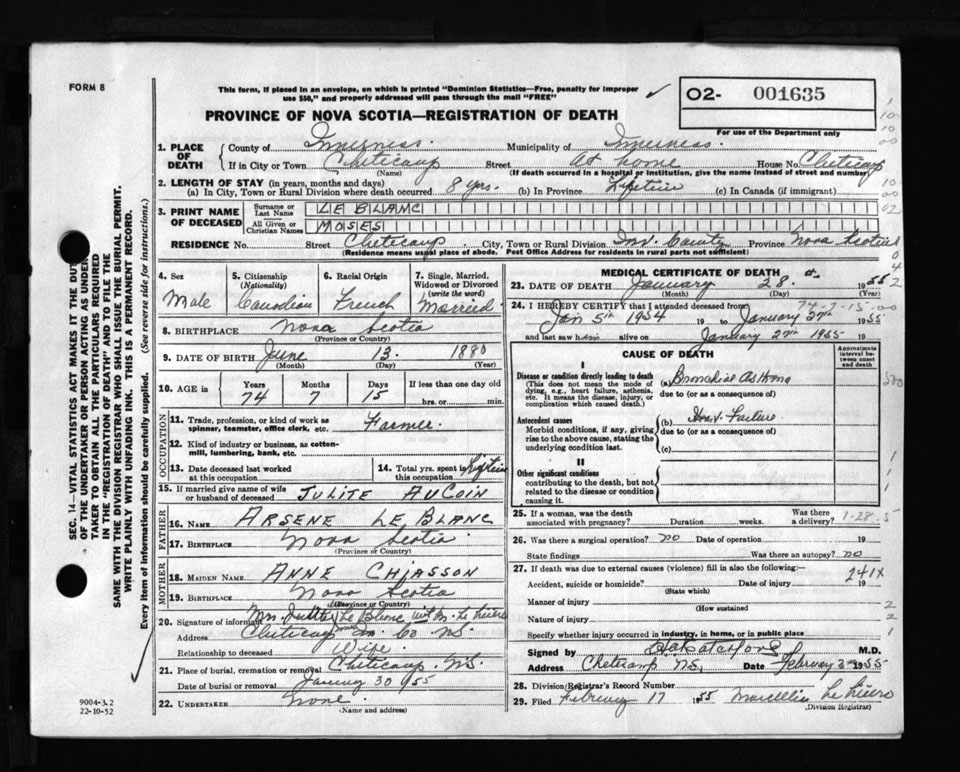 FORM 8
This form, if placed in an envelope, on which is printed "Dominion Statistics—Free, penalty for improper
use $50," and properly addressed will pass through the mail "FREE"
O2- 001635
For use of the Department only
PROVINCE OF NOVA SCOTIA—REGISTRATION OF DEATH
1. PLACE OF DEATH
County of Inverness. Municipality of Inverness.
If in City or Town Cheticamp Street At home House No. Cheticamp
(Name) (If death occurred in a hospital or institution, give the name instead of street and number)
2. LENGTH OF STAY (in years, months and days)
(a) In City, Town or Rural Division where death occurred 8 yrs. (b) In Province Lifetime (c) In Canada (if immigrant)
3. PRINT NAME OF DECEASED
Surname or Last Name LE BLANC
All Given or Christian Names MOSES
RESIDENCE No. Street Cheticamp. City, Town or Rural Division Inv. County Province Nova Scotia
(Residence means usual place of abode. Post Office Address for residents in rural parts not sufficient)
4. Sex Male
5. Citizenship (Nationality) Canadian
6. Racial Origin French
7. Single, Married, Widowed or Divorced (write the word) Married
8. BIRTHPLACE Nova Scotia
(Province or Country)
9. DATE OF BIRTH June 13. 1880
(Month) (Day) (Year)
10. AGE in Years 74 Months 7 Days 15 If less than one day old
hrs. or min.
OCCUPATION
11. Trade, profession, or kind of work as
spinner, teamster, office clerk, etc. Farmer.
12. Kind of industry or business, as cotten-
mill, lumbering, bank, etc.
13. Date deceased last worked
at this occupation
14. Total yrs. spent in
this occupation Lifetime
15. If married give name of wife
or husband of deceased JULITE AUCOIN
FATHER
16. NAME ARSENE LE BLANC
17. BIRTHPLACE Nova Scotia
(Province or Country)
MOTHER
18. MAIDEN NAME ANNE CHIASSON
19. BIRTHPLACE Nova Scotia
(Province or Country)
20. Signature of informant Mrs. Le Blanc
Address Cheticamp Inv. Co N.S.
Relationship to deceased Wife.
21. Place of burial, cremation or removal Cheticamp N.S.
Date of burial or removal January 30 1955
22. UNDERTAKER None
(Name and address)
MEDICAL CERTIFICATE OF DEATH
23. DATE OF DEATH January 28. 1955
(Month) (Day) (Year)
24. I HEREBY CERTIFY that I attended deceased from
74-7-15-00
Jan 5th 1954 19 to January 27th 1955
and last saw h alive on January 27th 1955
CAUSE OF DEATH
Approximate
interval be-
tween onset
and death
I
Disease or condition directly leading to death
(This does not mean the mode of
dying, e.g., heart failure, asthenia,
etc. It means the disease, injury, or
complication which caused death.)
(a) Bronchial Asthma
due to (or as a consequence of)
Antecedent causes
Morbid conditions, if any, giving
rise to the above cause, stating the
underlying condition last.
(b) Failure.
due to (or as a consequence of)
(c)
II
Other significant conditions
contributing to the death, but not
related to the disease or condition
causing it.
25. If a woman, was the death
associated with pregnancy? Duration weeks. Was there
a delivery? 1-28-5
26. Was there a surgical operation? no Date of operation 19
State findings Was there an autopsy? no
27. If death was due to external causes (violence) fill in also the following:—
241X
Accident, suicide or homicide? Date of injury 19
(State which)
Manner of injury
(How sustained
Nature of injury
Specify whether injury occurred in industry, in home, or in public place
Signed by M.D.
Address Cheticamp N.S. Date February 2nd 1955
28. Division Registrar's Record Number
29. Filed February 17 1955
(Division Registrar)
SEC. 14—VITAL STATISTICS ACT MAKES IT THE DUTY
OF THE UNDERTAKER OR PERSON ACTING AS UNDER-
TAKER TO OBTAIN ALL THE PARTICULARS REQUIRED
IN THE "REGISTRATION OF DEATH" AND TO FILE THE
SAME WITH THE DIVISION REGISTRAR WHO SHALL ISSUE THE BURIAL PERMIT.
WRITE PLAINLY WITH UNFADING INK. THIS IS A PERMANENT RECORD.
Every item of information should be carefully supplied. (See reverse side for instructions.)
9004-3.2
22-10-52